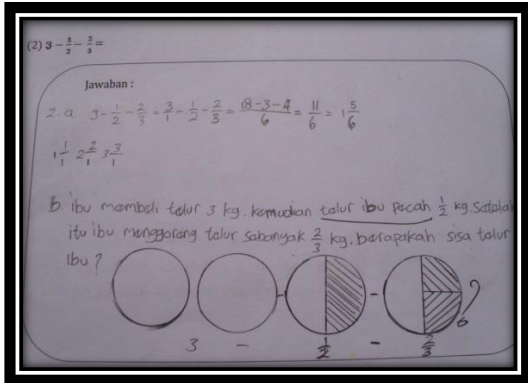 (2) 3 - 1/2 - 2/3 =
Jawaban :
2. a. 3 - 1/2 - 2/3 = 3/1 - 1/2 - 2/3 = 18-3-4/6 = 11/6 = 1 5/6
1 1/1 2 2/1 3 3/1
b ibu membeli telur 3 kg. kemudian telur ibu pecah 1/2 kg. Setelah
itu ibu menggoreng telur sebanyak 2/3 kg. berapakah sisa telur
ibu ?
3 - 1/2 - 2/3